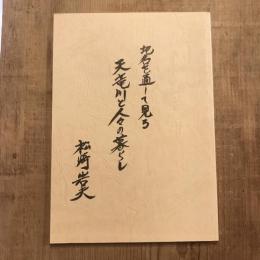 地名を通して見る
天竜川と人々の暮らし
松崎岩夫